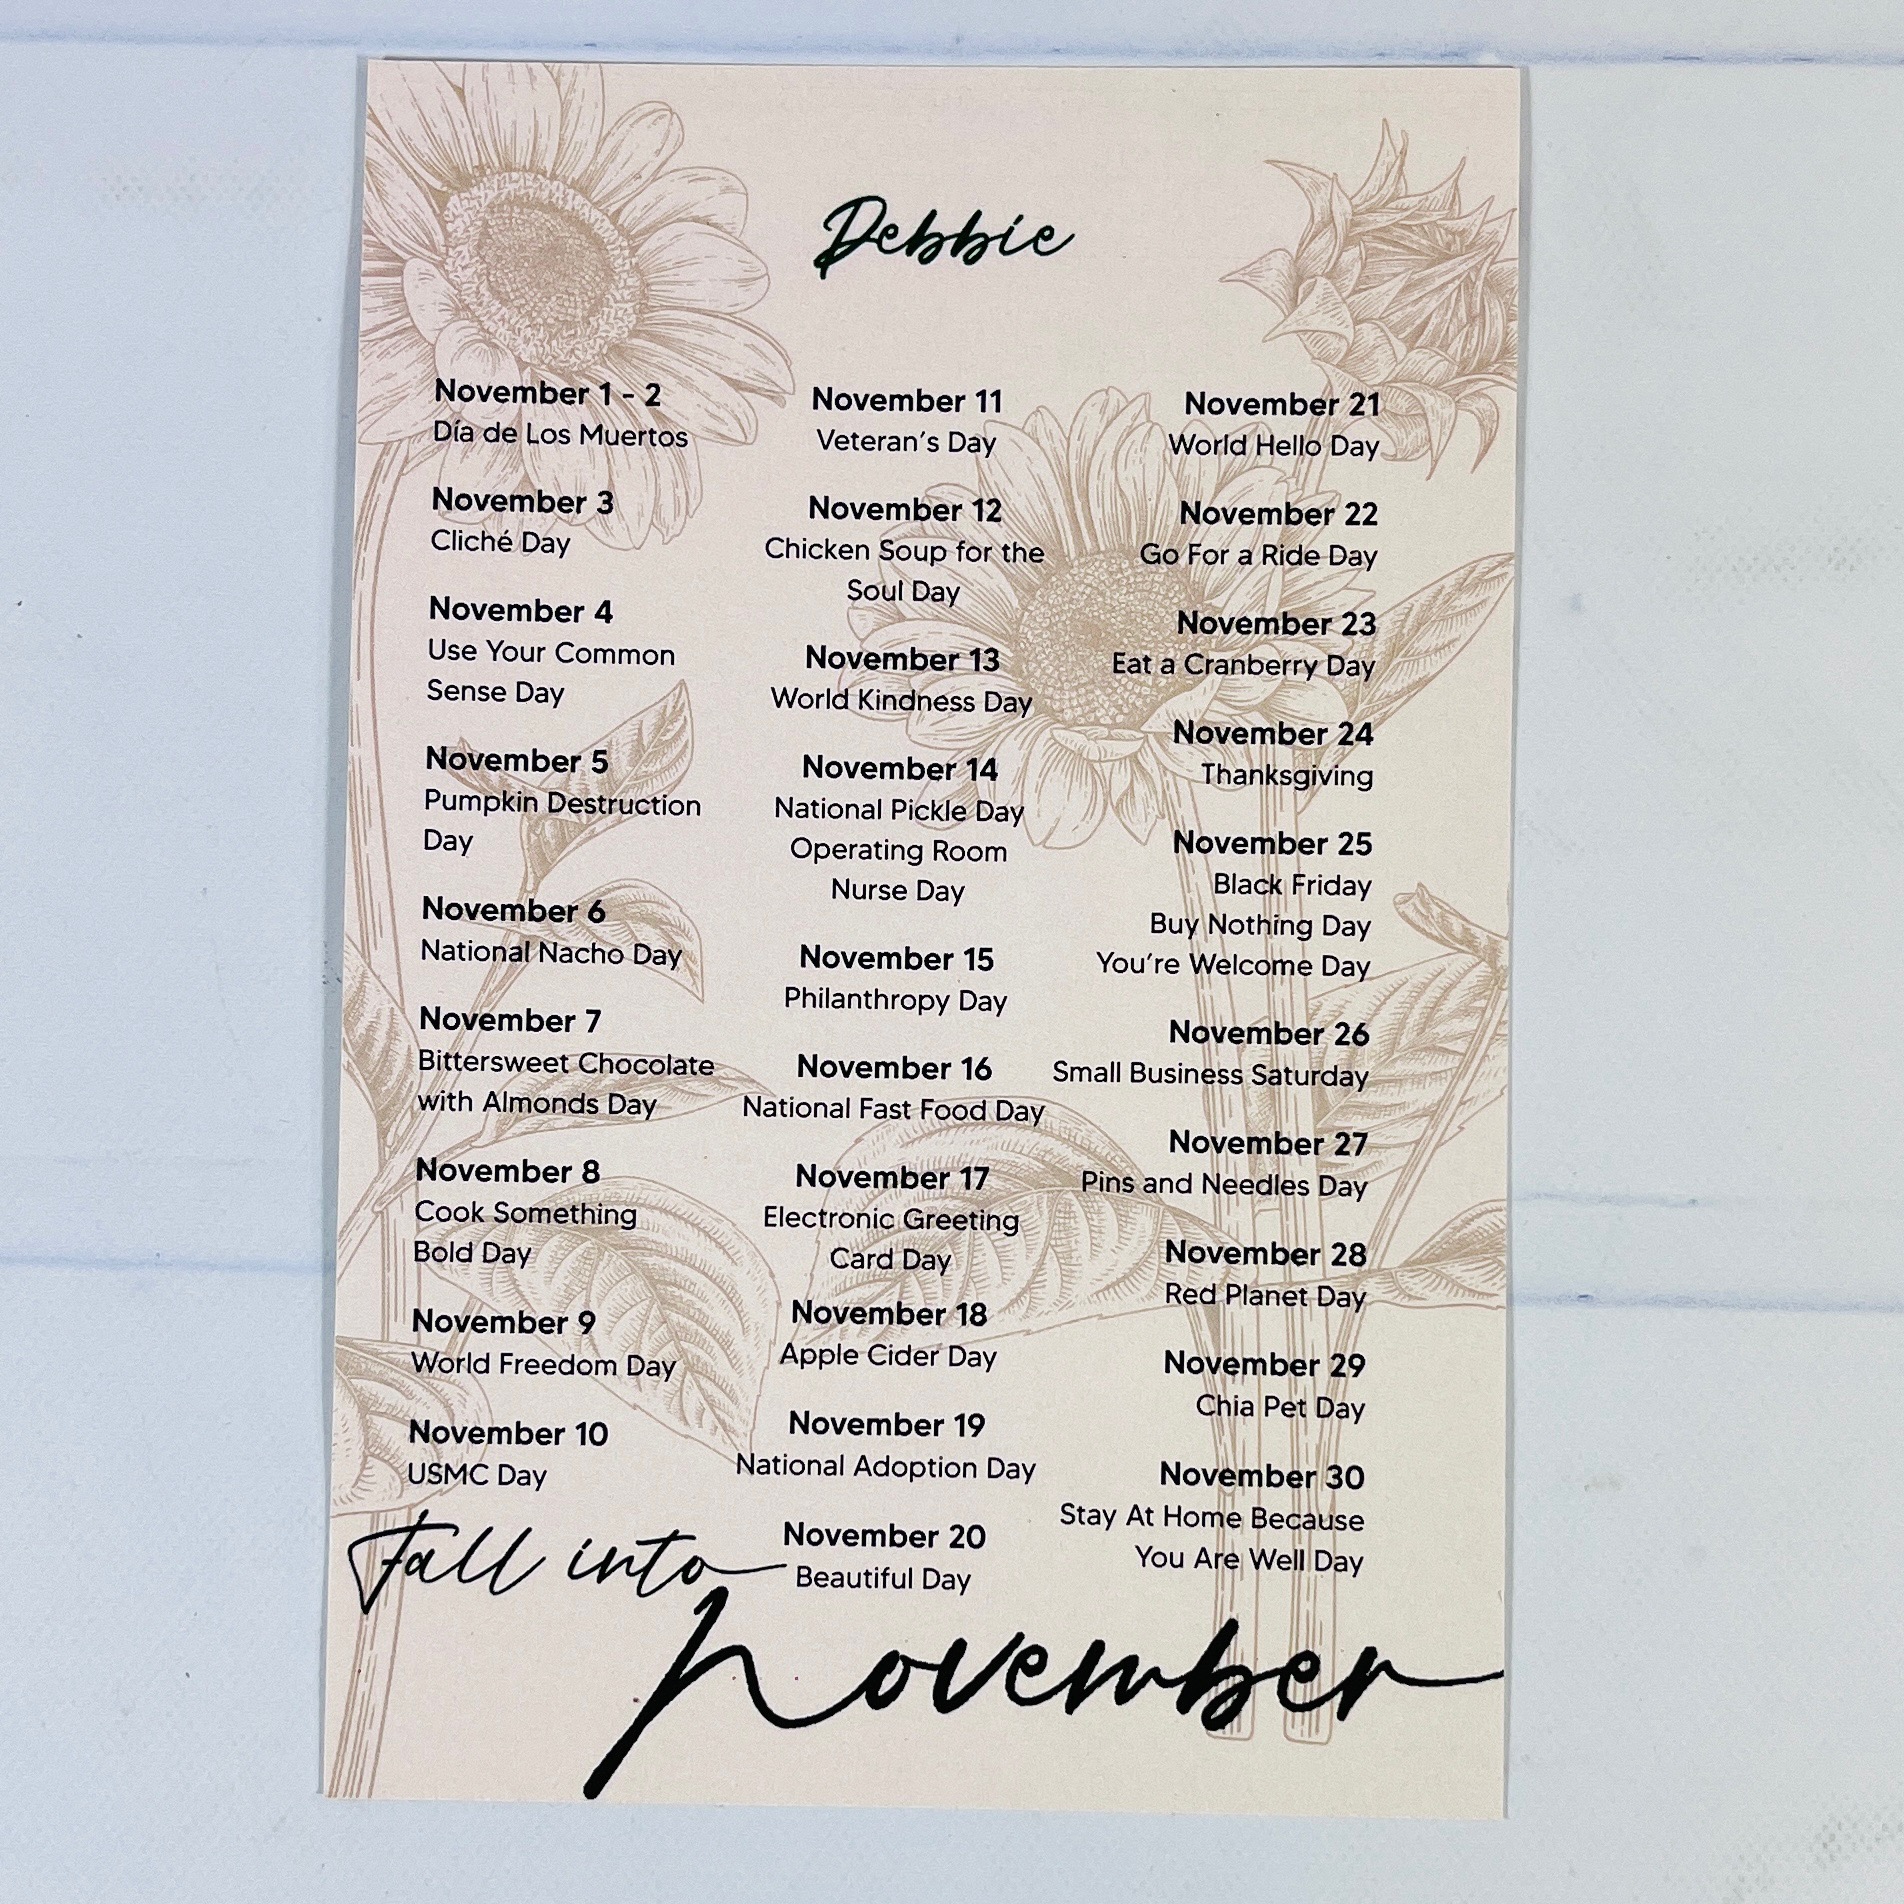 Debbie
November 1 - 2
Día de Los Muertos
November 3
Cliché Day
November 4
Use Your Common
Sense Day
November 5
Pumpkin Destruction
Day
November 6
National Nacho Day
November 7
Bittersweet Chocolate
with Almonds Day
November 8
Cook Something
Bold Day
November 9
World Freedom Day
November 10
USMC Day
November 11
Veteran's Day
November 12
Chicken Soup for the
Soul Day
November 13
World Kindness Day
November 14
National Pickle Day
Operating Room
Nurse Day
November 15
Philanthropy Day
November 16
National Fast Food Day
November 17
Electronic Greeting
Card Day
November 18
Apple Cider Day
November 19
National Adoption Day
November 20
Beautiful Day
November 21
World Hello Day
November 22
Go For a Ride Day
November 23
Eat a Cranberry Day
November 24
Thanksgiving
November 25
Black Friday
Buy Nothing Day
You're Welcome Day
November 26
Small Business Saturday
November 27
Pins and Needles Day
November 28
Red Planet Day
November 29
Chia Pet Day
November 30
Stay At Home Because
You Are Well Day
Fall into
November